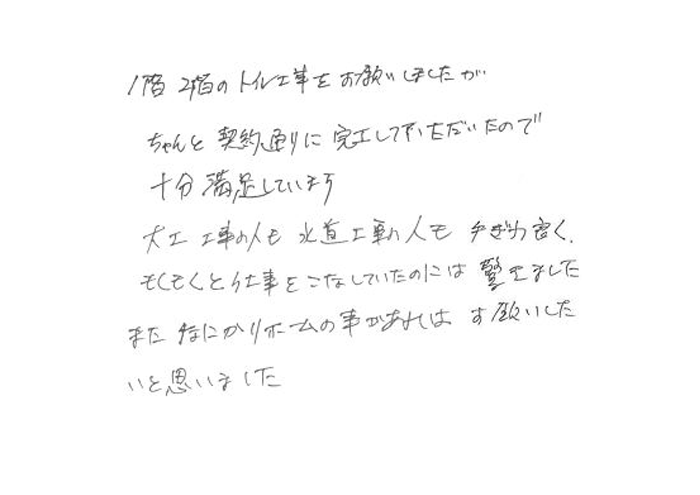 1階 2階のトイレ工事をお願いしましたが
ちゃんと契約通りに完工していただいたので
十分満足しています
大工工事の人も水道工事の人も手ぎわ良く、
もくもくと仕事をこなしていたのには驚きました
また なにかリホームの事があれば お願いした
いと思いました